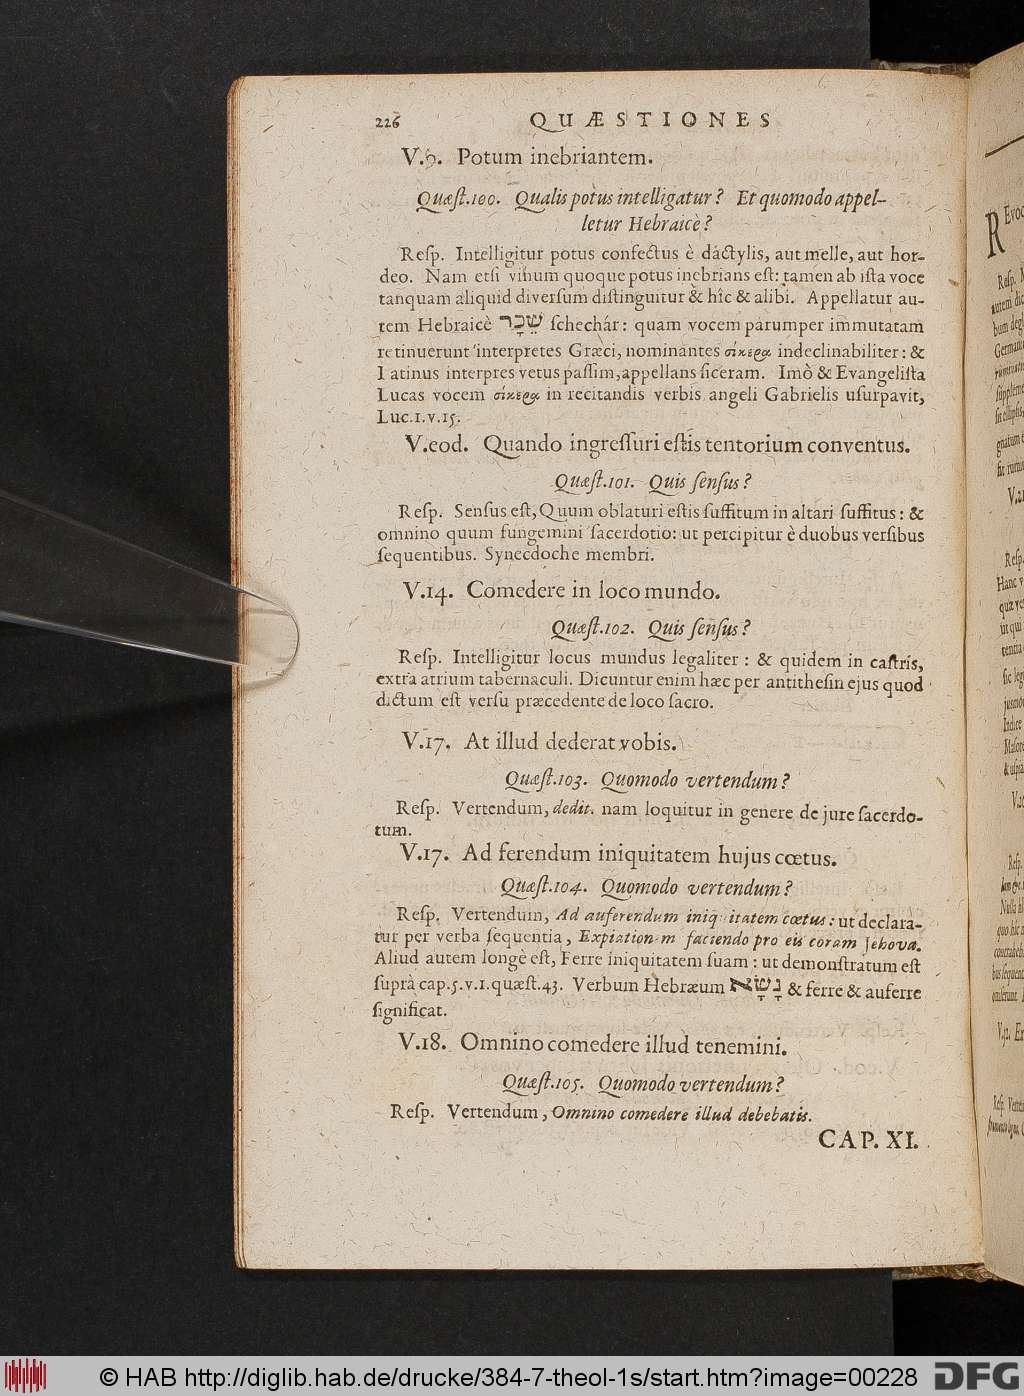 226 QUÆSTIONES
V.9. Potum inebriantem.
Quæſt.100. Qualis potus intelligatur? Et quomodo appel-
letur Hebraicè?
Reſp. Intelligitur potus confectus è dactylis, aut melle, aut hor-
deo. Nam etſi vinum quoque potus inebrians eſt: tamen ab iſta voce
tanquam aliquid diverſum diſtinguitur & hîc & alibi. Appellatur au-
tem Hebraicè שֵׁכָר ſchechár: quam vocem parumper immutatam
retinuerunt interpretes Græci, nominantes σίκερα indeclinabiliter: &
Latinus interpres vetus paſſim, appellans ſiceram. Imò & Evangeliſta
Lucas vocem σίκερα in recitandis verbis angeli Gabrielis uſurpavit,
Luc.1.v.15.
V.eod. Quando ingreſſuri eſtis tentorium conventus.
Quæſt.101. Quis ſenſus?
Reſp. Senſus eſt, Quum oblaturi eſtis ſuffitum in altari ſuffitus: &
omnino quum fungemini ſacerdotio: ut percipitur è duobus verſibus
ſequentibus. Synecdoche membri.
V.14. Comedere in loco mundo.
Quæſt.102. Quis ſenſus?
Reſp. Intelligitur locus mundus legaliter: & quidem in caſtris,
extra atrium tabernaculi. Dicuntur enim hæc per antitheſin ejus quod
dictum eſt verſu præcedente de loco ſacro.
V.17. At illud dederat vobis.
Quæſt.103. Quomodo vertendum?
Reſp. Vertendum, dedit. nam loquitur in genere de jure ſacerdo-
tum.
V.17. Ad ferendum iniquitatem hujus cœtus.
Quæſt.104. Quomodo vertendum?
Reſp. Vertendum, Ad auferendum iniquitatem cœtus: ut declara-
tur per verba ſequentia, Expiationem faciendo pro eis coram Jehova.
Aliud autem longè eſt, Ferre iniquitatem ſuam: ut demonſtratum eſt
ſuprà cap.5.v.1.quæſt.43. Verbum Hebræum נָשָׂא & ferre & auferre
ſignificat.
V.18. Omnino comedere illud tenemini.
Quæſt.105. Quomodo vertendum?
Reſp. Vertendum, Omnino comedere illud debebatis.
CAP. XI.
© HAB http://diglib.hab.de/drucke/384-7-theol-1s/start.htm?image=00228 DFG